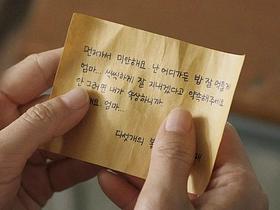 먼저가서 미안해요 난 어디가든 밥 잘 먹을게
엄마... 씩씩하게 잘 지내겠다고 약속해주세요
안 그러면 내가 속상하니까
요. 엄마...
다섯개의